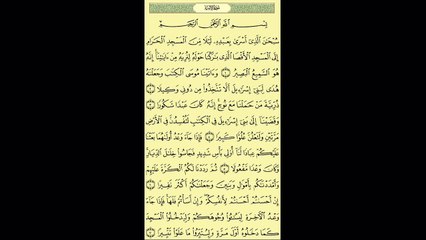 سُورَةُ الإِسْرَاءِ
بِسْمِ ٱللَّهِ ٱلرَّحْمَٰنِ ٱلرَّحِيمِ
سُبْحَٰنَ ٱلَّذِىٓ أَسْرَىٰ بِعَبْدِهِۦ لَيْلًا مِّنَ ٱلْمَسْجِدِ ٱلْحَرَامِ
إِلَى ٱلْمَسْجِدِ ٱلْأَقْصَا ٱلَّذِى بَٰرَكْنَا حَوْلَهُۥ لِنُرِيَهُۥ مِنْ ءَايَٰتِنَآ إِنَّهُۥ
هُوَ ٱلسَّمِيعُ ٱلْبَصِيرُ ١ وَءَاتَيْنَا مُوسَى ٱلْكِتَٰبَ وَجَعَلْنَٰهُ
هُدًى لِّبَنِىٓ إِسْرَٰٓءِيلَ أَلَّا تَتَّخِذُوا۟ مِن دُونِى وَكِيلًا ٢
ذُرِّيَّةَ مَنْ حَمَلْنَا مَعَ نُوحٍ إِنَّهُۥ كَانَ عَبْدًا شَكُورًا ٣
وَقَضَيْنَآ إِلَىٰ بَنِىٓ إِسْرَٰٓءِيلَ فِى ٱلْكِتَٰبِ لَتُفْسِدُنَّ فِى ٱلْأَرْضِ
مَرَّتَيْنِ وَلَتَعْلُنَّ عُلُوًّا كَبِيرًا ٤ فَإِذَا جَآءَ وَعْدُ أُولَىٰهُمَا بَعَثْنَا
عَلَيْكُمْ عِبَادًا لَّنَآ أُو۟لِى بَأْسٍ شَدِيدٍ فَجَاسُوا۟ خِلَٰلَ ٱلدِّيَارِ
وَكَانَ وَعْدًا مَّفْعُولًا ٥ ثُمَّ رَدَدْنَا لَكُمُ ٱلْكَرَّةَ عَلَيْهِمْ
وَأَمْدَدْنَٰكُم بِأَمْوَٰلٍ وَبَنِينَ وَجَعَلْنَٰكُمْ أَكْثَرَ نَفِيرًا ٦
إِنْ أَحْسَنتُمْ أَحْسَنتُمْ لِأَنفُسِكُمْ وَإِنْ أَسَأْتُمْ فَلَهَا فَإِذَا جَآءَ
وَعْدُ ٱلْءَاخِرَةِ لِيَسُۥٓـُٔوا۟ وُجُوهَكُمْ وَلِيَدْخُلُوا۟ ٱلْمَسْجِدَ
كَمَا دَخَلُوهُ أَوَّلَ مَرَّةٍ وَلِيُتَبِّرُوا۟ مَا عَلَوْا۟ تَتْبِيرًا ٧